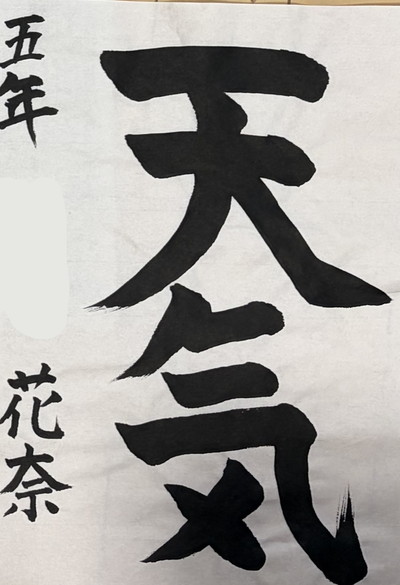 天気
五年
花奈